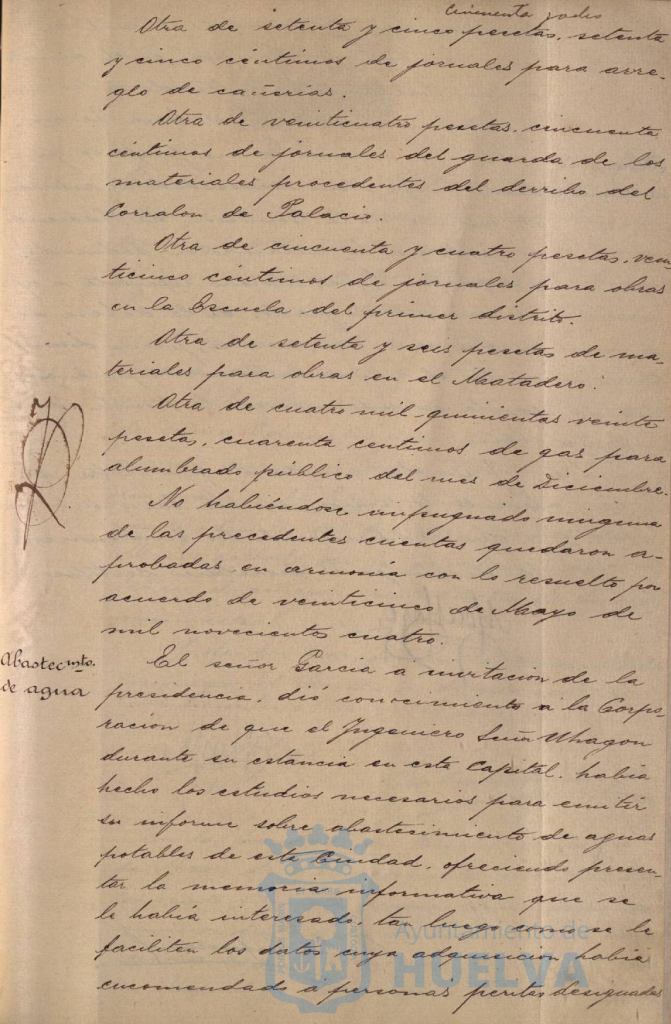 cincuenta y dos
Otra de setenta y cinco pesetas, setenta
y cinco céntimos de jornales para arre-
glo de cañerias.
Otra de veinticuatro pesetas, cincuenta
céntimos de jornales del guarda de los
materiales procedentes del derribo del
Corralon de Palacio.
Otra de cincuenta y cuatro pesetas, vein-
ticinco céntimos de jornales para obras
en la Escuela del primer distrito.
Otra de setenta y seis pesetas de ma-
teriales para obras en el Matadero.
Otra de cuatro mil quinientas veinte
peseta, cuarenta centimos de gas para
alumbrado público del mes de Diciembre.
No habiéndose impugnado ninguna
de las precedentes cuentas quedaron a-
probadas en armonía con lo resuelto por
acuerdo de veinticinco de Mayo de
mil novecientos cuatro.
Abastecmto.
de agua
El señor Garcia a invitacion de la
presidencia, dió conocimiento á la Corpo
racion de que el Ingeniero Señor Uhagon
durante su estancia en esta Capital, habia
hecho los estudios necesarios para emitir
su informe sobre abastecimiento de aguas
potables de esta Ciudad, ofreciendo presen-
tar la memoria informativa que se
le había interesado, tan luego como se le
faciliten los datos cuya adquisicion habia
encomendado á personas peritas designadas
Ayuntamiento de
HUELVA